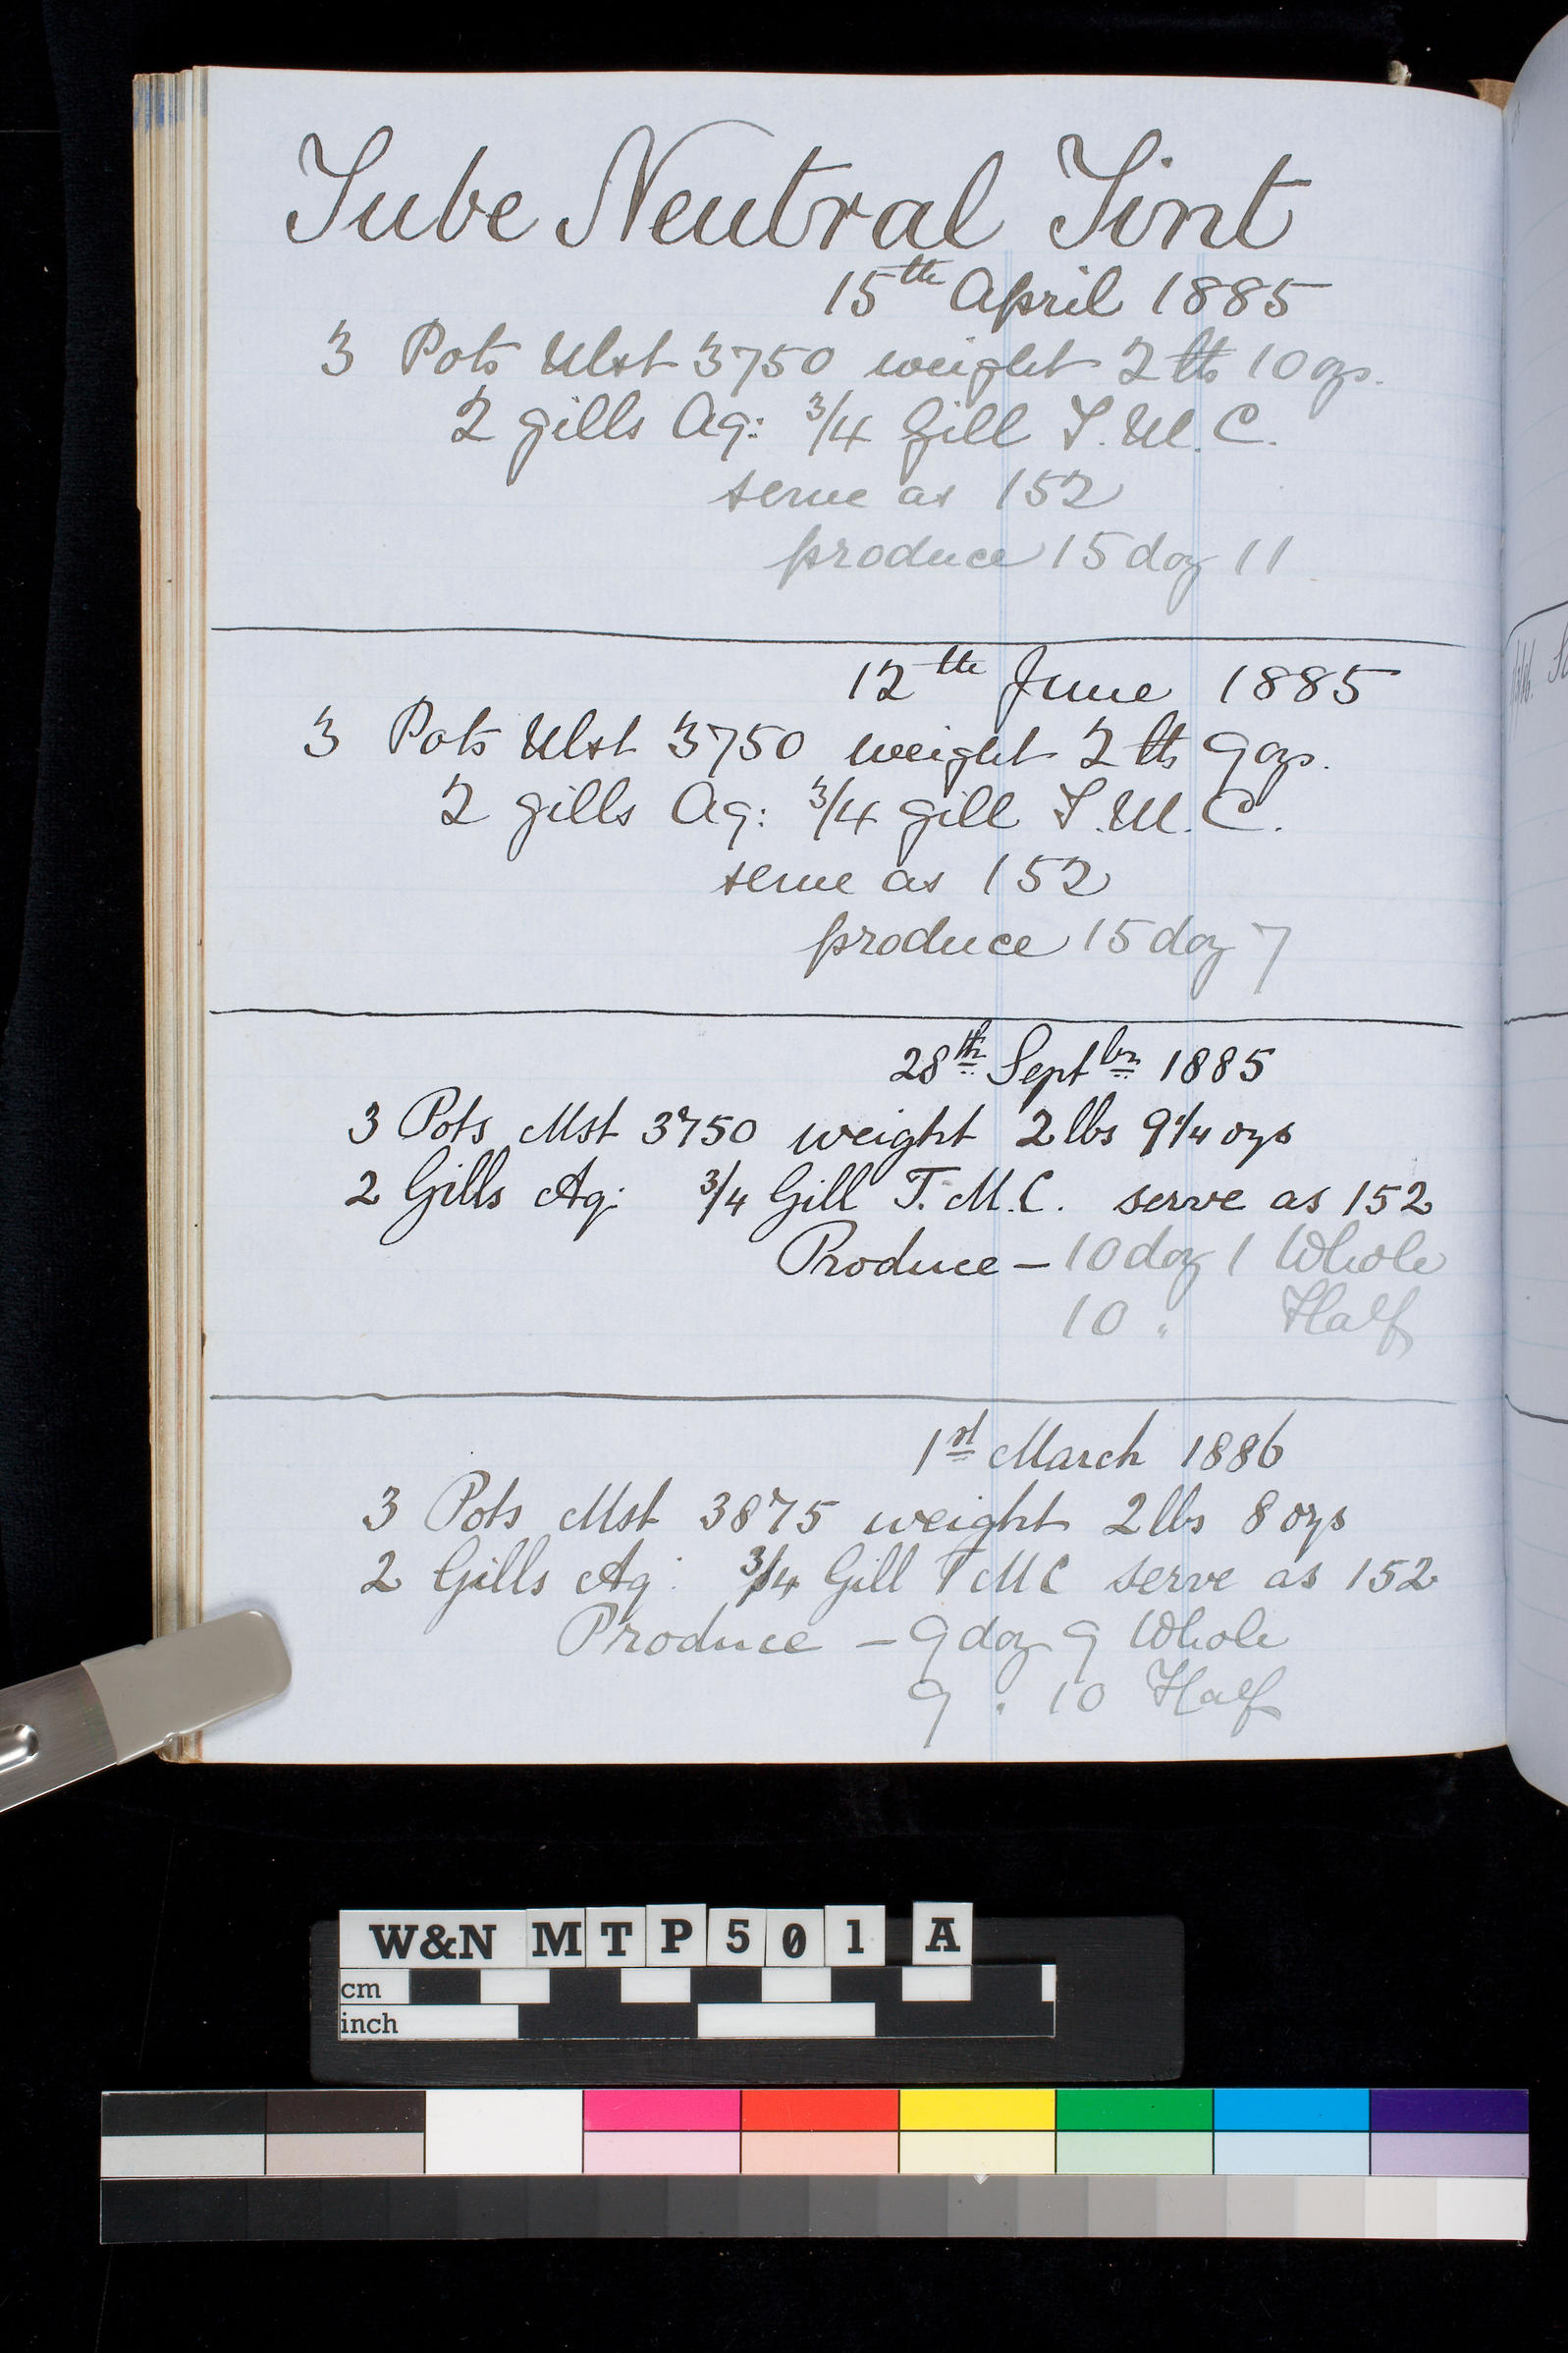 Tube Neutral Tint
15th April 1885
3 Pots Mst 3750 weight 2 lbs 10 ozs.
2 gills Aq: 3/4 Gill T.M.C.
serve as 152
produce 15 doz 11
12th June 1885
3 Pots Mst 3750 weight 2 lbs 9 ozs.
2 gills Aq: 3/4 gill T.M.C.
serve as 152
produce 15 doz 7
28th Septber 1885
3 Pots Mst 3750 weight 2 lbs 9 1/4 ozs
2 Gills Aq: 3/4 Gill T.M.C. serve as 152
Produce – 10 doz 1 Whole
10 " Half
1st March 1886
3 Pots Mst 3875 weight 2 lbs 8 ozs
2 Gills Aq: 3/4 Gill T M C serve as 152
Produce – 9 doz 9 Whole
9 " 10 Half
W&N MTP501 A
cm
inch